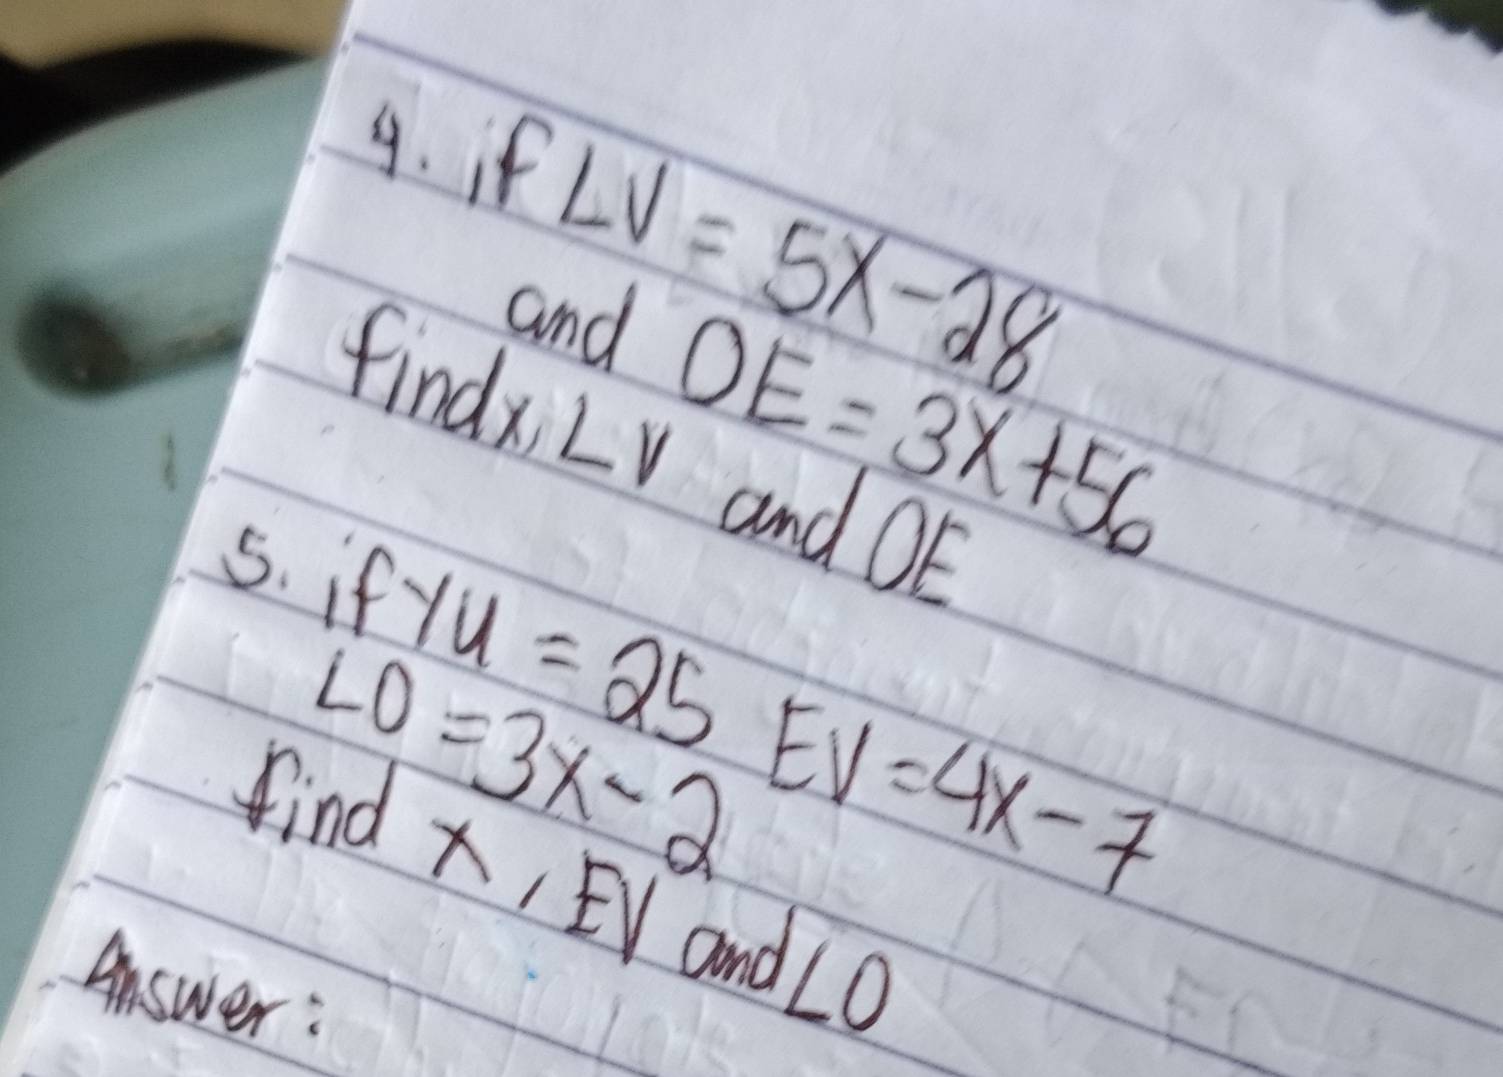 4. if LV = 5x-28
and OE = 3x+56
find x, LV and OE
5. if YU = 25 EV = 4x-7
LO = 3x-2
find x, EV and LO
Answer: